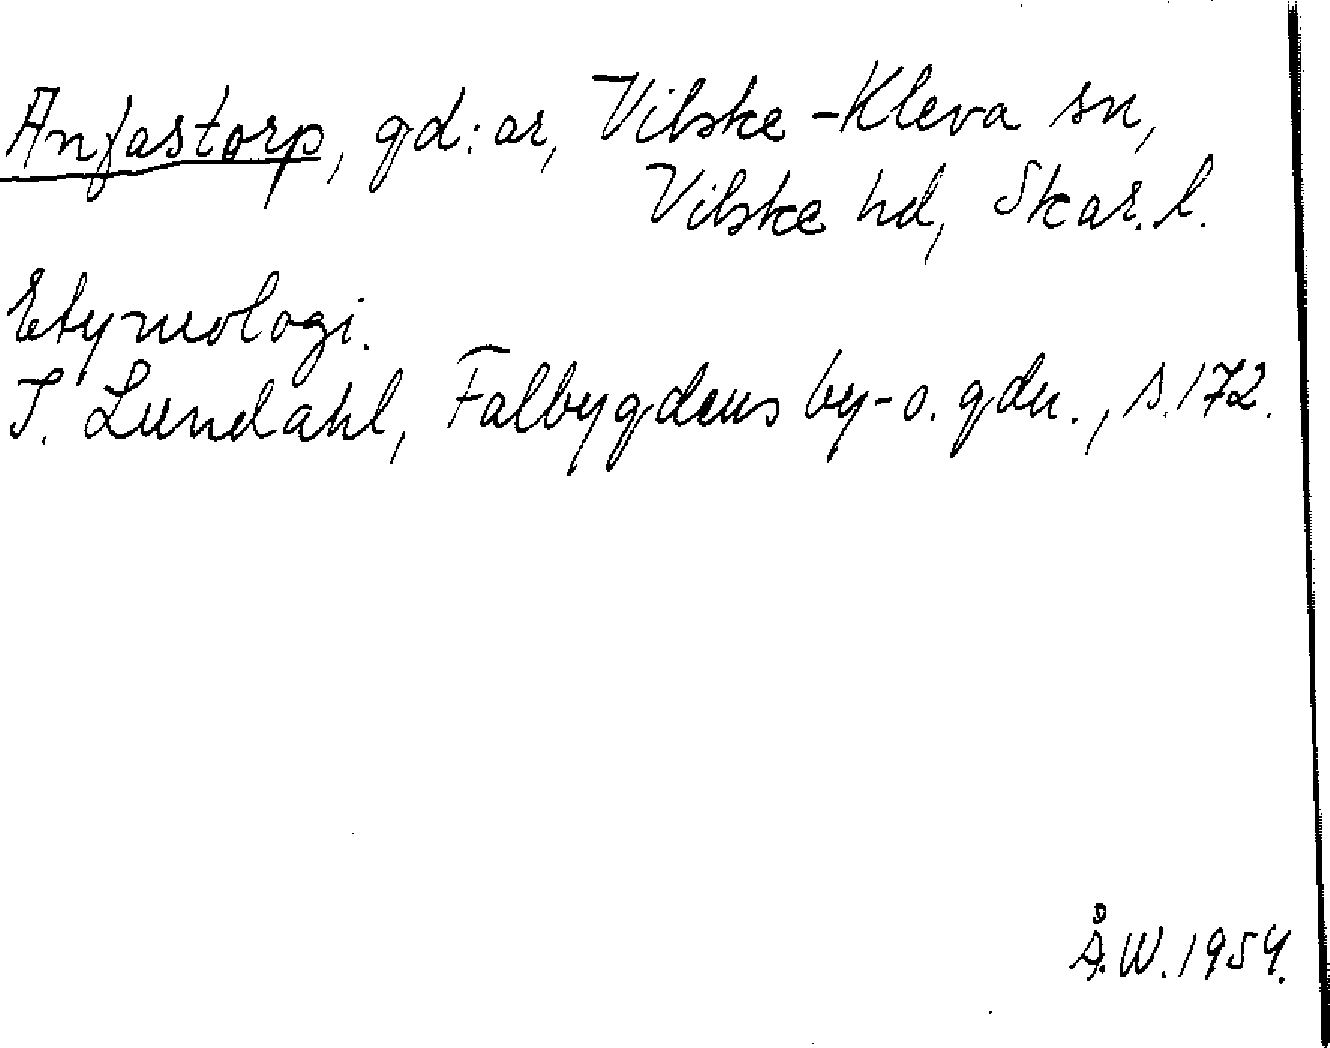 Anfastorp, gd:ar, Vilske-Kleva sn,
Vilske hd, Skar. l.
Etymologi.
I. Lundahl, Falbygdens by- o. gdn., s. 172.
Å.W. 1954.